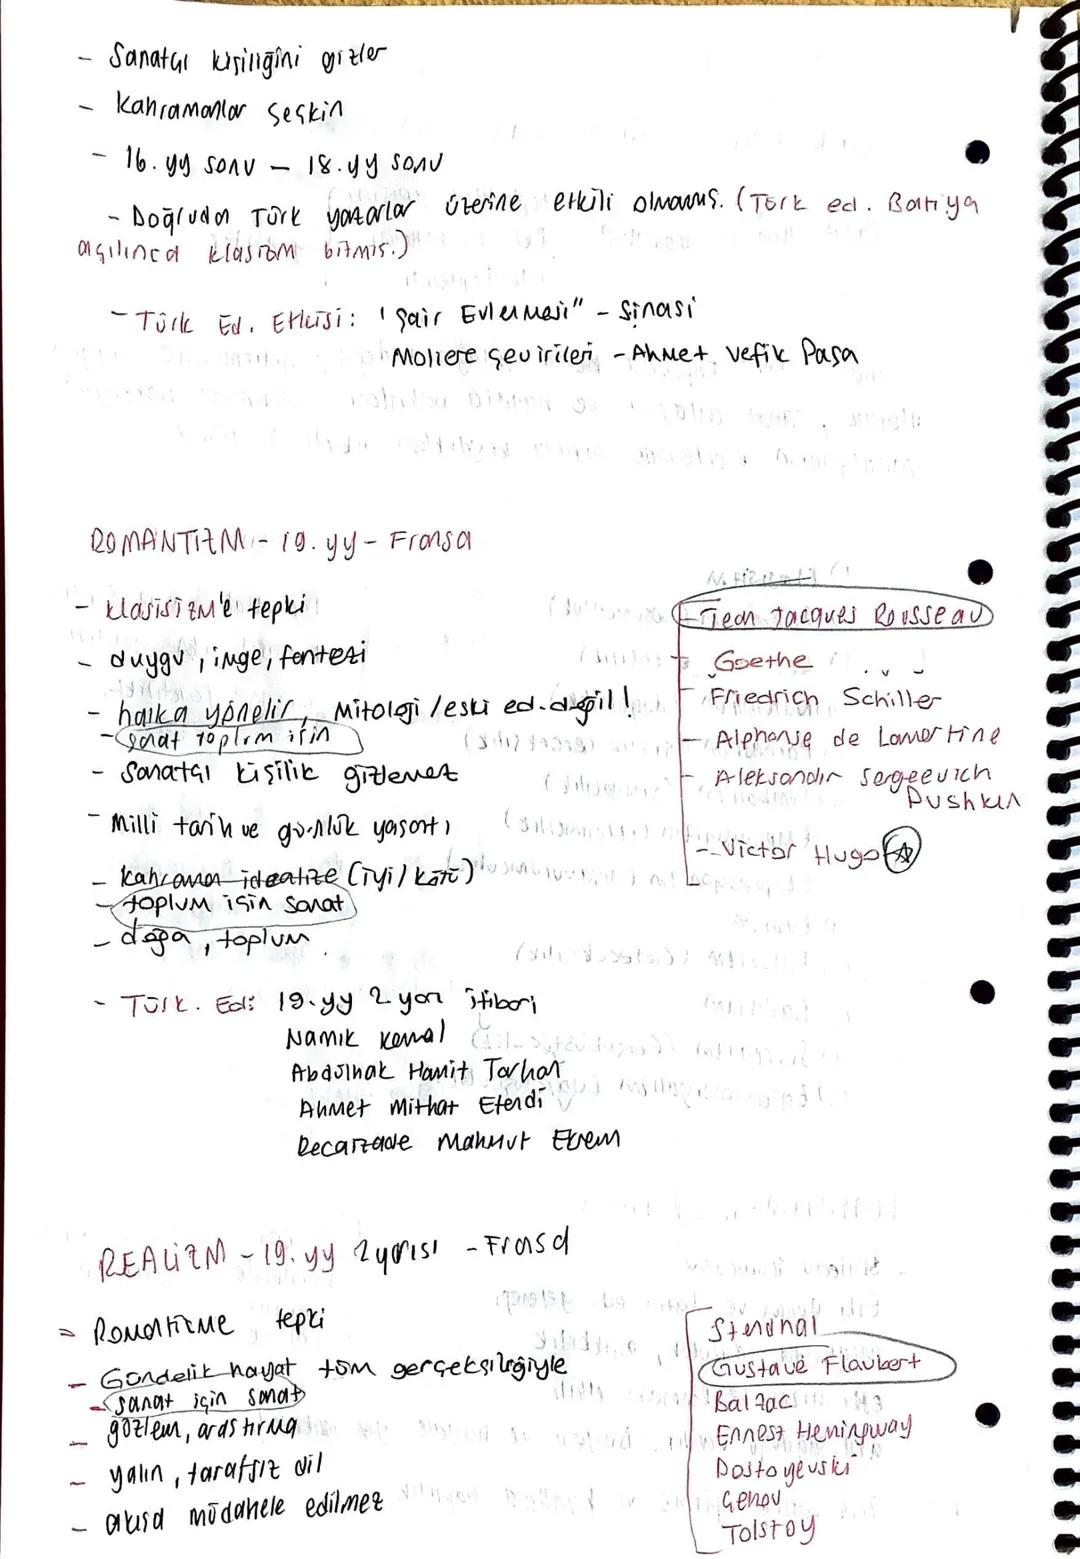 - Sanatçı kişiliğini gizler
- Kahramanlar seçkin
- 16. yy sonu - 18. yy sonu
- Doğrudan Türk yazarlar üzerine etkili olmamış. (Türk ed. Batıya
açılınca klasizm bitmiş.)
- Türk Ed. Etkisi: "Şair Evlenmesi" - Şinasi
Moliere çevirileri - Ahmet Vefik Paşa
ROMANTİZM - 19. yy - Fransa
- klasisizm'e tepki
- duygu, imge, fantezi
- halka yönelir, Mitoloji / eski ed. değil!
- sanat toplum için
- Sanatçı kişilik gizlemez
- Milli tarih ve günlük yaşantı
- kahraman idealize (iyi/kötü)
- toplum için sanat
- doğa, toplum
- Jean Jacques Rousseau
- Goethe
- Friedrich Schiller
- Alphonse de Lamertine
- Aleksandır Sergeevich
Pushkin
- Victor Hugo
- Türk. Ed: 19. yy 2 yarı itibari
Namık Kemal
Abdülhak Hamit Tarhan
Ahmet Mithat Efendi
Recaizade Mahmut Ekrem
REALİZM - 19. yy 2 yarısı - Frasa
- Romantizme tepki
- Gündelik hayat tüm gerçekçiliğiyle
- sanat için sanat
- gözlem, araştırma
- yalın, tarafsız dil
- akışa müdahele edilmez
Stendhal
Gustave Flaubert
Balzac
Ernest Hemingway
Dostoyevski
Çehov
Tolstoy